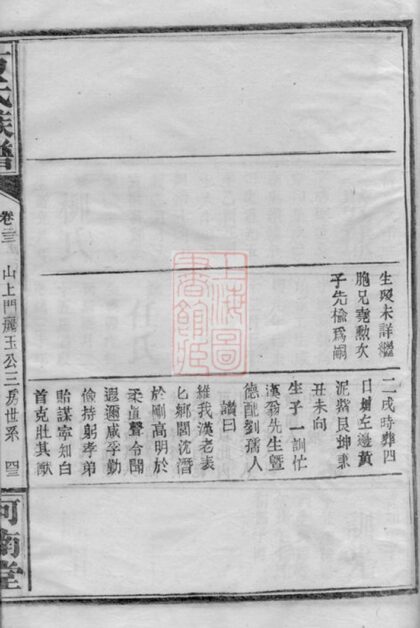 生歿未詳繼
胞兄堯勲次
子先檢爲嗣
二戌時葬四
日壩左邊黃
泥嶺艮坤兼
丑未向
生子一訓仕
漢翁先生暨
德配劉孺人
讚曰
維我漢老表
匕鄉閭沈潛
於剛高明於
柔道聲令聞
遐邇咸孚勤
儉持躬孝弟
貽謀寧知白
首克壯其猷
氏族譜
卷三
山上門麗玉公三房世系
河南堂
上海圖書館藏